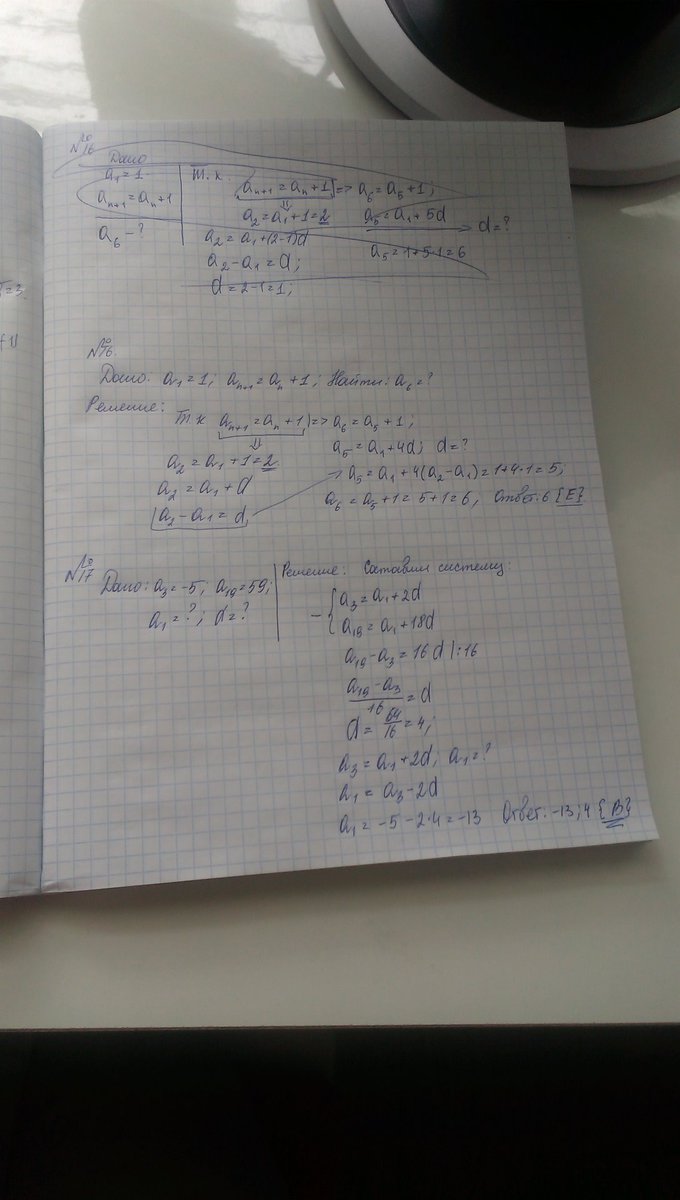 №16
Дано
a₁ = 1
aₙ₊₁ = aₙ + 1
a₆ – ?
Т. к. aₙ₊₁ = aₙ + 1 => a₆ = a₅ + 1;
⇓
a₂ = a₁ + 1 = 2
a₅ = a₁ + 5d
d = ?
a₂ = a₁ + (2-1)d
a₅ = 1 + 5·1 = 6
a₂ - a₁ = d;
d = 2-1 = 1;
№16.
Дано: a₁ = 1; aₙ₊₁ = aₙ + 1; Найти: a₆ = ?
Решение:
Т к aₙ₊₁ = aₙ + 1 => a₆ = a₅ + 1;
⇓
a₅ = a₁ + 4d; d = ?
a₂ = a₁ + 1 = 2
a₅ = a₁ + 4(a₂ - a₁) = 1 + 4·1 = 5;
a₂ = a₁ + d
a₆ = a₅ + 1 = 5 + 1 = 6, Ответ: 6 {E}
a₂ - a₁ = d,
№17
Дано: a₃ = -5; a₁₉ = 59;
a₁ = ?; d = ?
Решение: Составим систему:
– { a₃ = a₁ + 2d
a₁₉ = a₁ + 18d
a₁₉ - a₃ = 16d |:16
(a₁₉ - a₃)/16 = d
d = 64/16 = 4;
a₃ = a₁ + 2d; a₁ = ?
a₁ = a₃ - 2d
a₁ = -5 - 2·4 = -13 Ответ: -13; 4 {B}